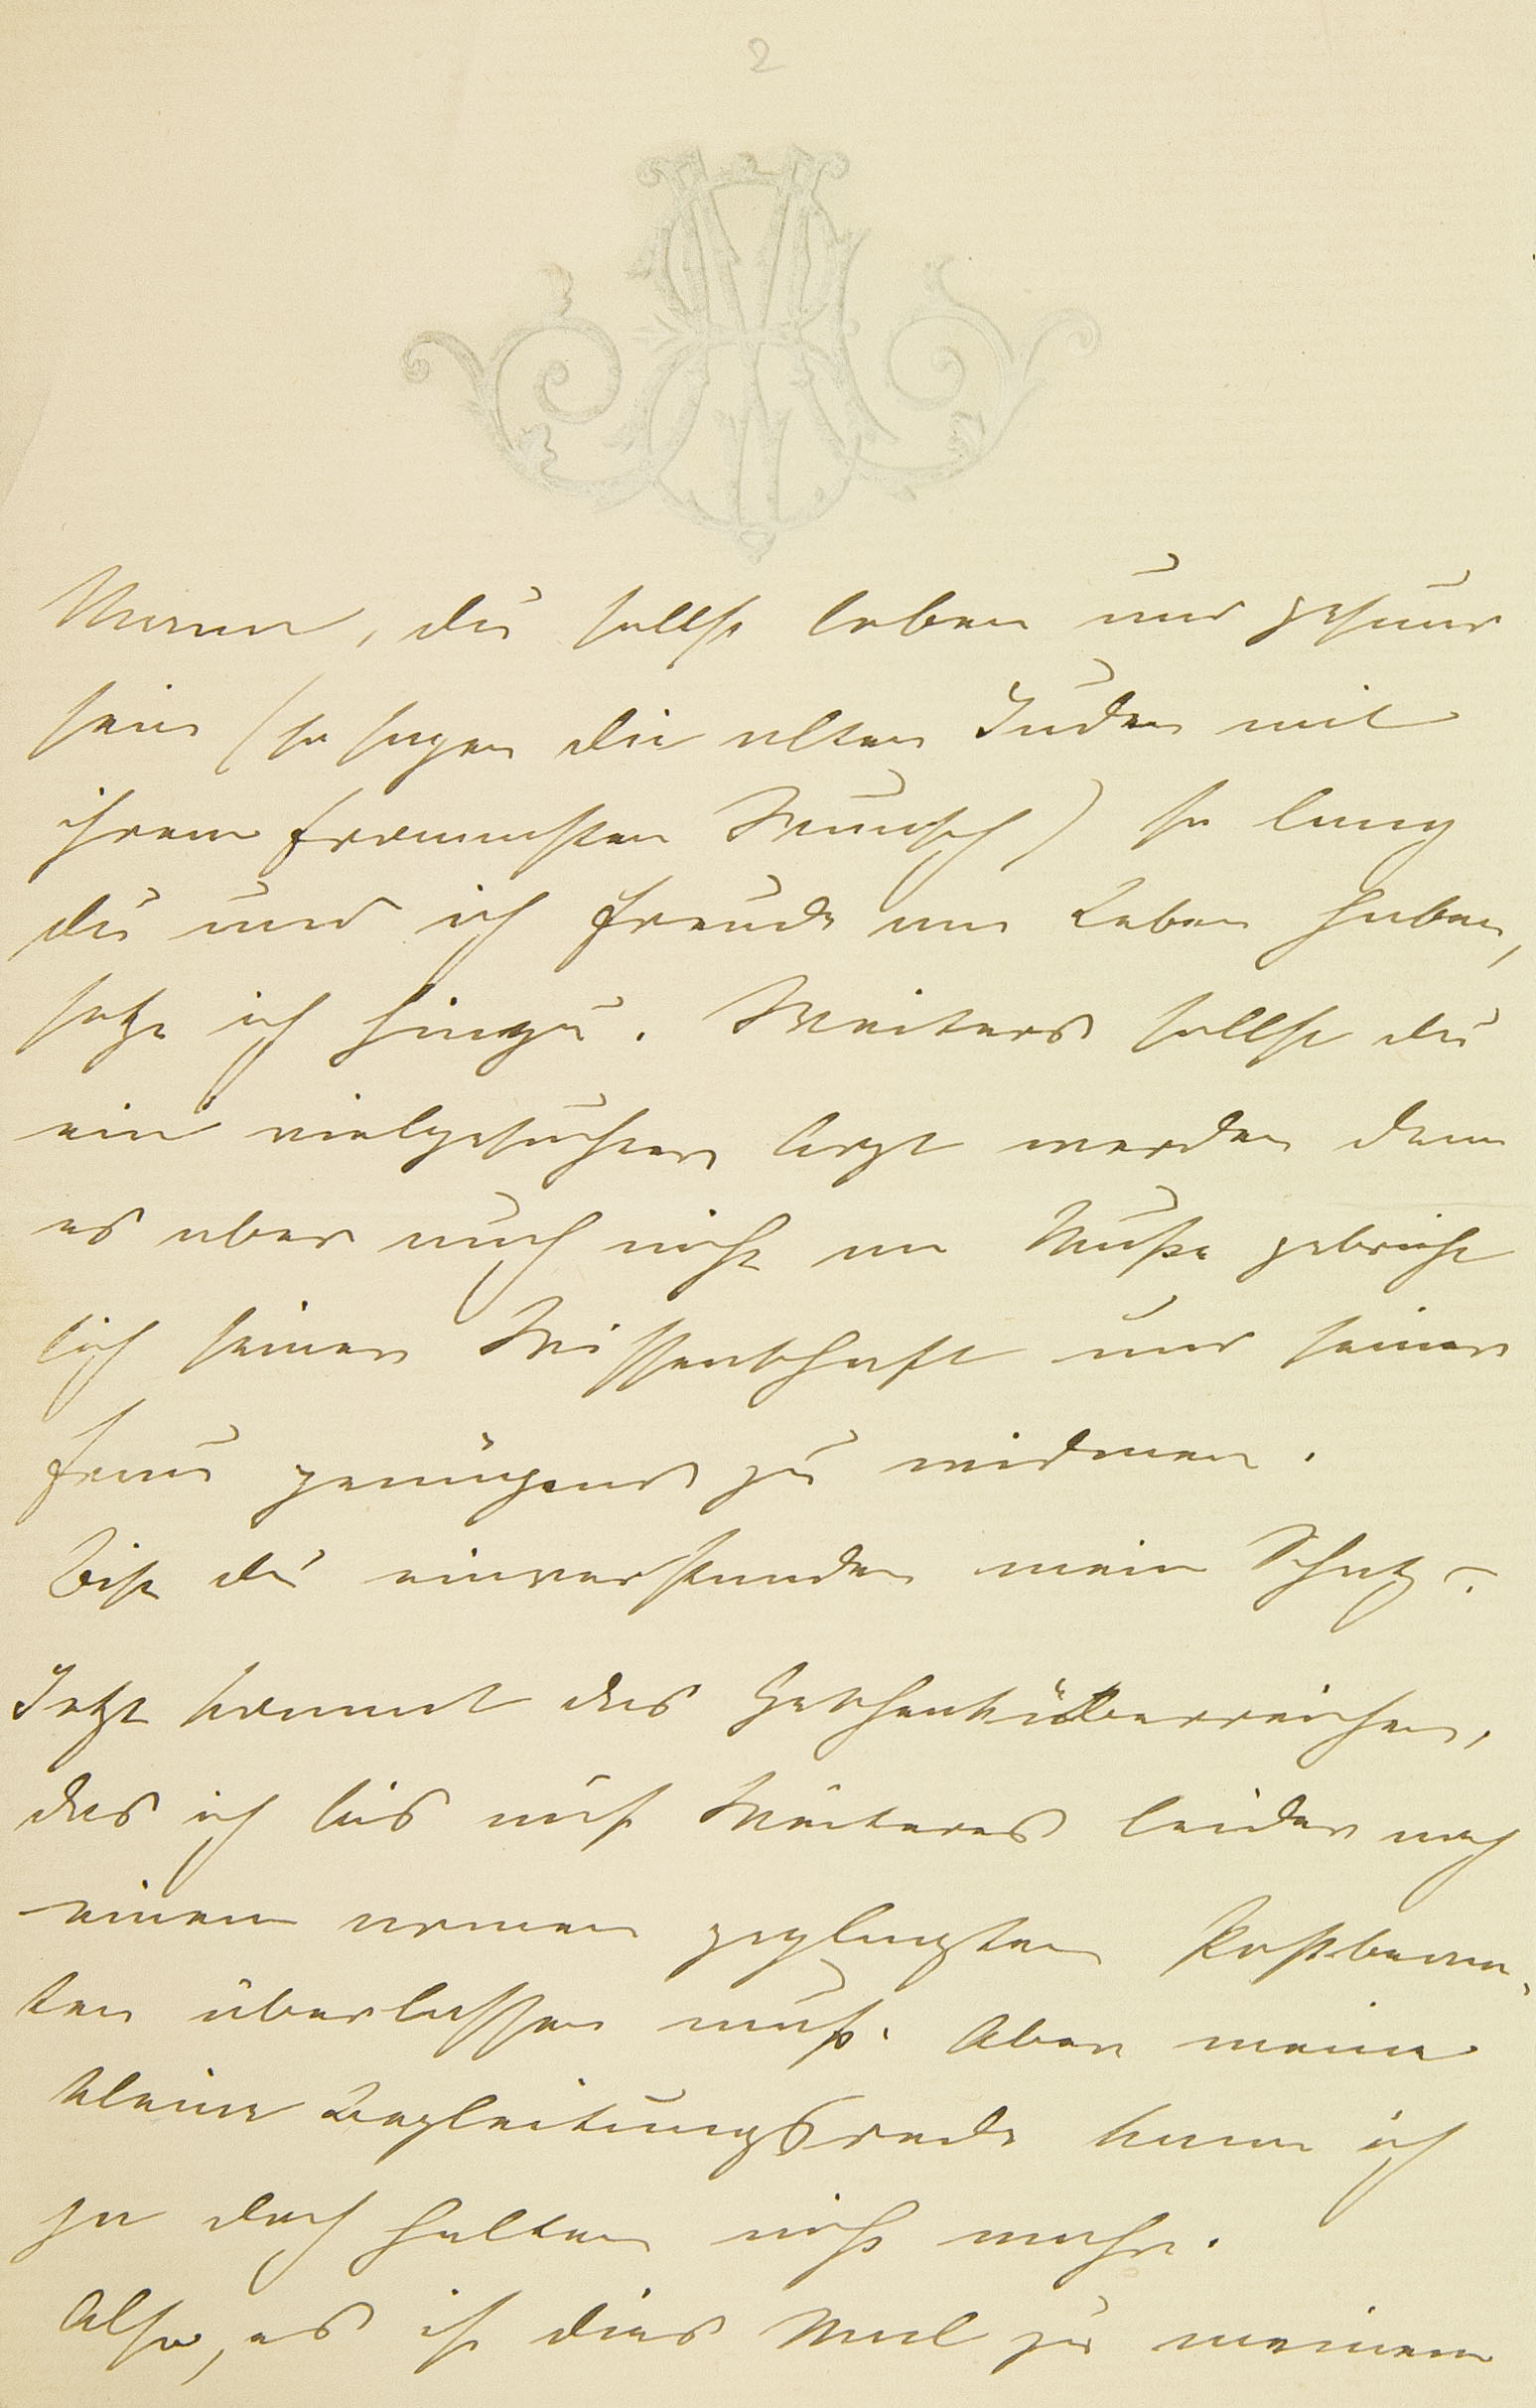 2
Mann, du sollst leben und gesund
sein (so sagen die alten Juden mit
ihrem frommsten Wunsch) so lang
du und ich Freude am Leben haben,
setze ich hinzu. Weiters sollst du
ein vielgesuchter Arzt werden dem
es aber auch nicht an Muße gebricht
sich seiner Wissenschaft und seiner
Frau genügend zu widmen.
Bist du einverstanden mein Schatz?
Jetzt kommt das Geschenküberreichen,
das ich bis auf Weiteres leider noch
einem armen geplagten Postbeam-
ten überlassen muß. Aber meine
kleine Begleitungsrede kann ich
ja doch halten nicht wahr.
Also, es ist dies Mal zu meinem